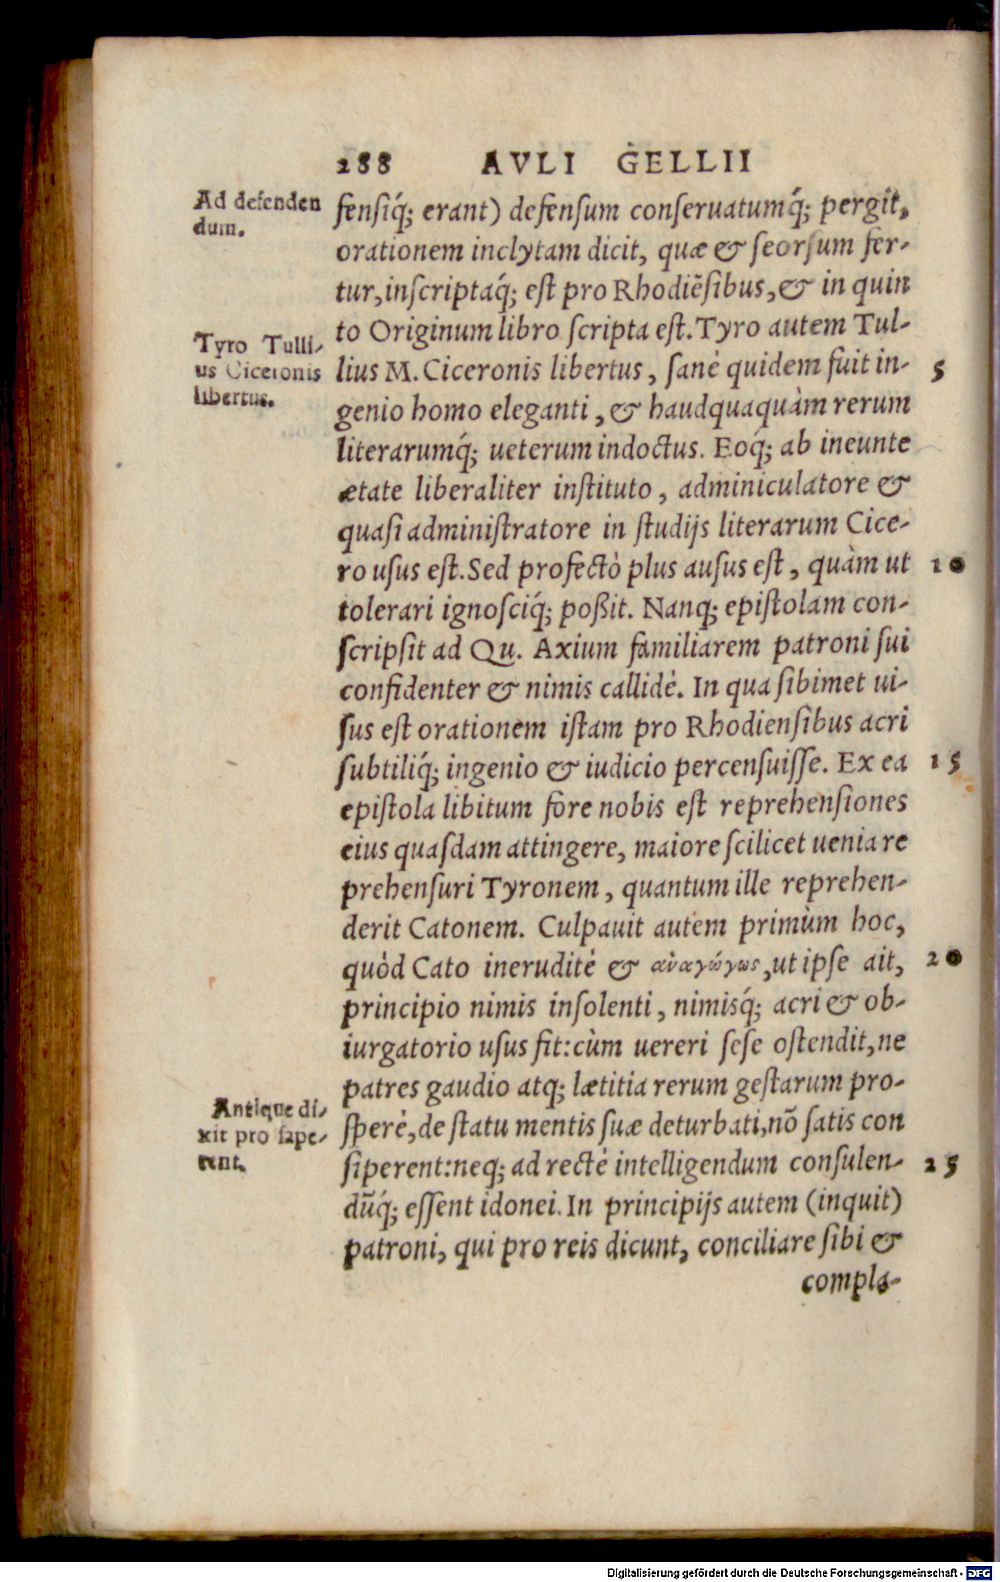 288 AVLI GELLII
Ad defenden
dum.
fenſiq́; erant) defenſum conſeruatumq́; pergit,
orationem inclytam dicit, quæ & ſeorſum fer-
tur, inſcriptaq́; eſt pro Rhodiẽſibus, & in quin
to Originum libro ſcripta eſt. Tyro autem Tul-
Tyro Tulli-
us Ciceronis
libertus.
lius M. Ciceronis libertus, ſanè quidem fuit in- 5
genio homo eleganti, & haudquaquàm rerum
literarumq́; ueterum indoctus. Eoq́; ab ineunte
ætate liberaliter inſtituto, adminiculatore &
quaſi adminiſtratore in ſtudijs literarum Cice-
ro uſus eſt. Sed profectò plus auſus eſt, quàm ut 10
tolerari ignoſciq́; poßit. Nanq; epiſtolam con-
ſcripſit ad Qu. Axium familiarem patroni ſui
confidenter & nimis callidè. In qua ſibimet ui-
ſus eſt orationem iſtam pro Rhodienſibus acri
ſubtiliq́; ingenio & iudicio percenſuiſſe. Ex ea 15
epiſtola libitum fore nobis eſt reprehenſiones
eius quaſdam attingere, maiore ſcilicet uenia re
prehenſuri Tyronem, quantum ille reprehen-
derit Catonem. Culpauit autem primùm hoc,
quòd Cato ineruditè & ἀναγώγως, ut ipſe ait, 20
principio nimis inſolenti, nimisq́; acri & ob-
iurgatorio uſus ſit: cùm uereri ſeſe oſtendit, ne
patres gaudio atq; lætitia rerum geſtarum pro-
Antique di-
xit pro sape-
rent.
ſperè, de ſtatu mentis ſuæ deturbati, nõ ſatis con
ſiperent: neq; ad rectè intelligendum conſulen- 25
dũq́; eſſent idonei. In principijs autem (inquit)
patroni, qui pro reis dicunt, conciliare ſibi &
compla-
Digitalisierung gefördert durch die Deutsche Forschungsgemeinschaft - DFG